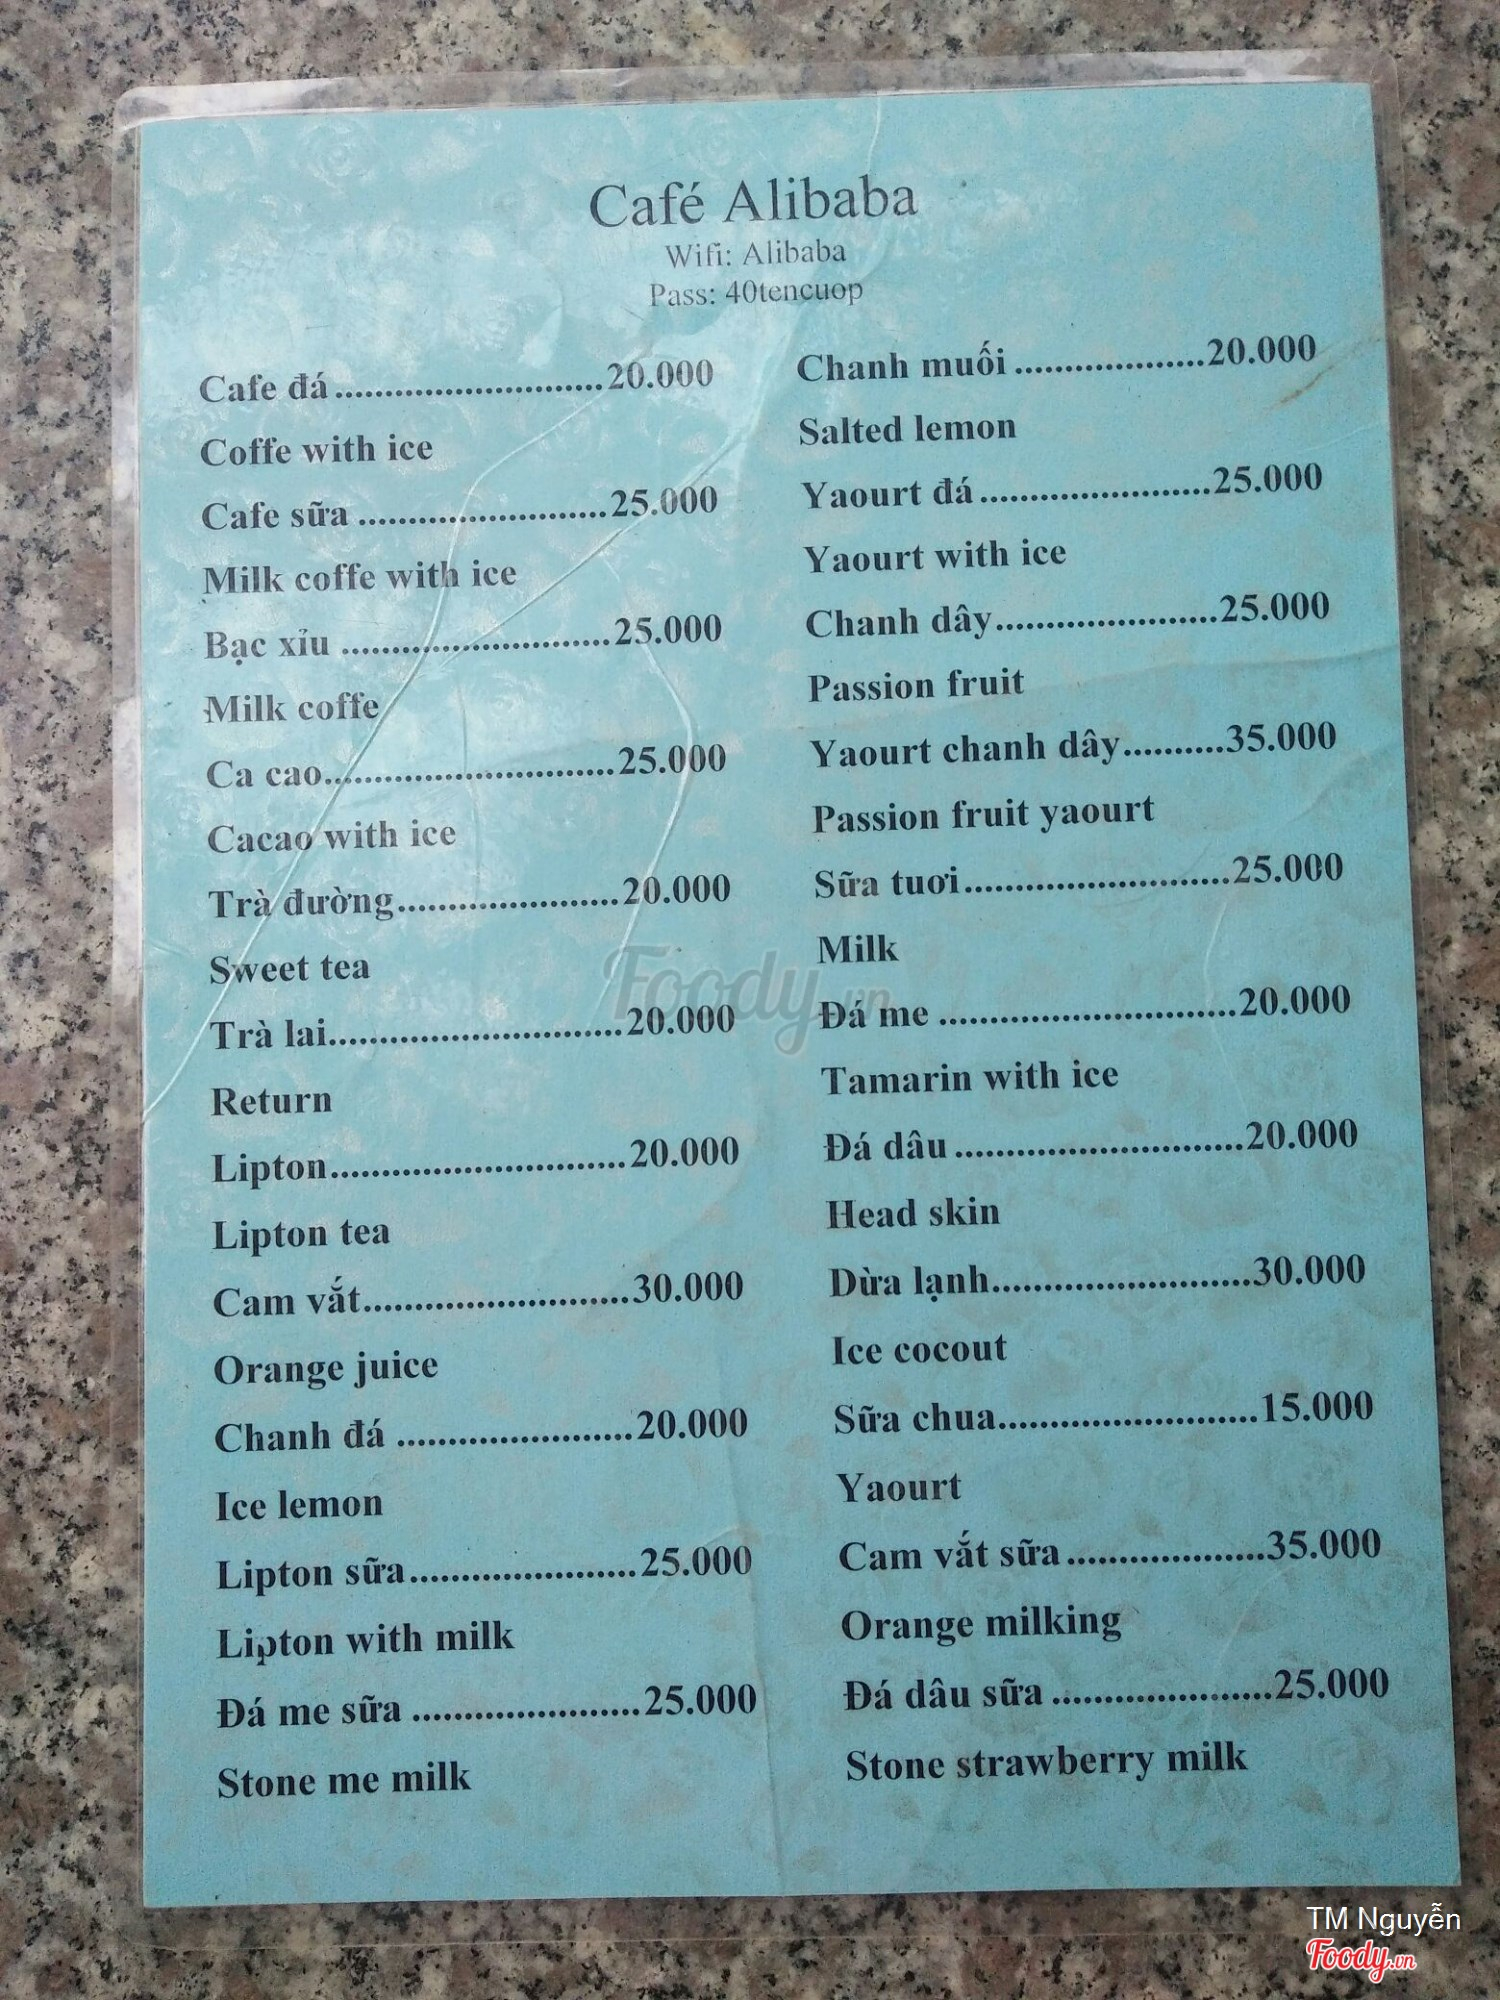 Café Alibaba
Wifi: Alibaba
Pass: 40tencuop
Cafe đá...........................20.000
Coffe with ice
Cafe sữa .........................25.000
Milk coffe with ice
Bạc xỉu ...........................25.000
Milk coffe
Ca cao.............................25.000
Cacao with ice
Trà đường......................20.000
Sweet tea
Trà lai.............................20.000
Return
Lipton.............................20.000
Lipton tea
Cam vắt..........................30.000
Orange juice
Chanh đá .......................20.000
Ice lemon
Lipton sữa......................25.000
Lipton with milk
Đá me sữa ......................25.000
Stone me milk
Chanh muối ...................20.000
Salted lemon
Yaourt đá.......................25.000
Yaourt with ice
Chanh dây......................25.000
Passion fruit
Yaourt chanh dây..........35.000
Passion fruit yaourt
Sữa tuơi..........................25.000
Milk
Đá me .............................20.000
Tamarin with ice
Đá dâu ............................20.000
Head skin
Dừa lạnh.........................30.000
Ice cocout
Sữa chua.........................15.000
Yaourt
Cam vắt sữa ...................35.000
Orange milking
Đá dâu sữa .....................25.000
Stone strawberry milk
Foody.vn
TM Nguyễn
Foody.vn